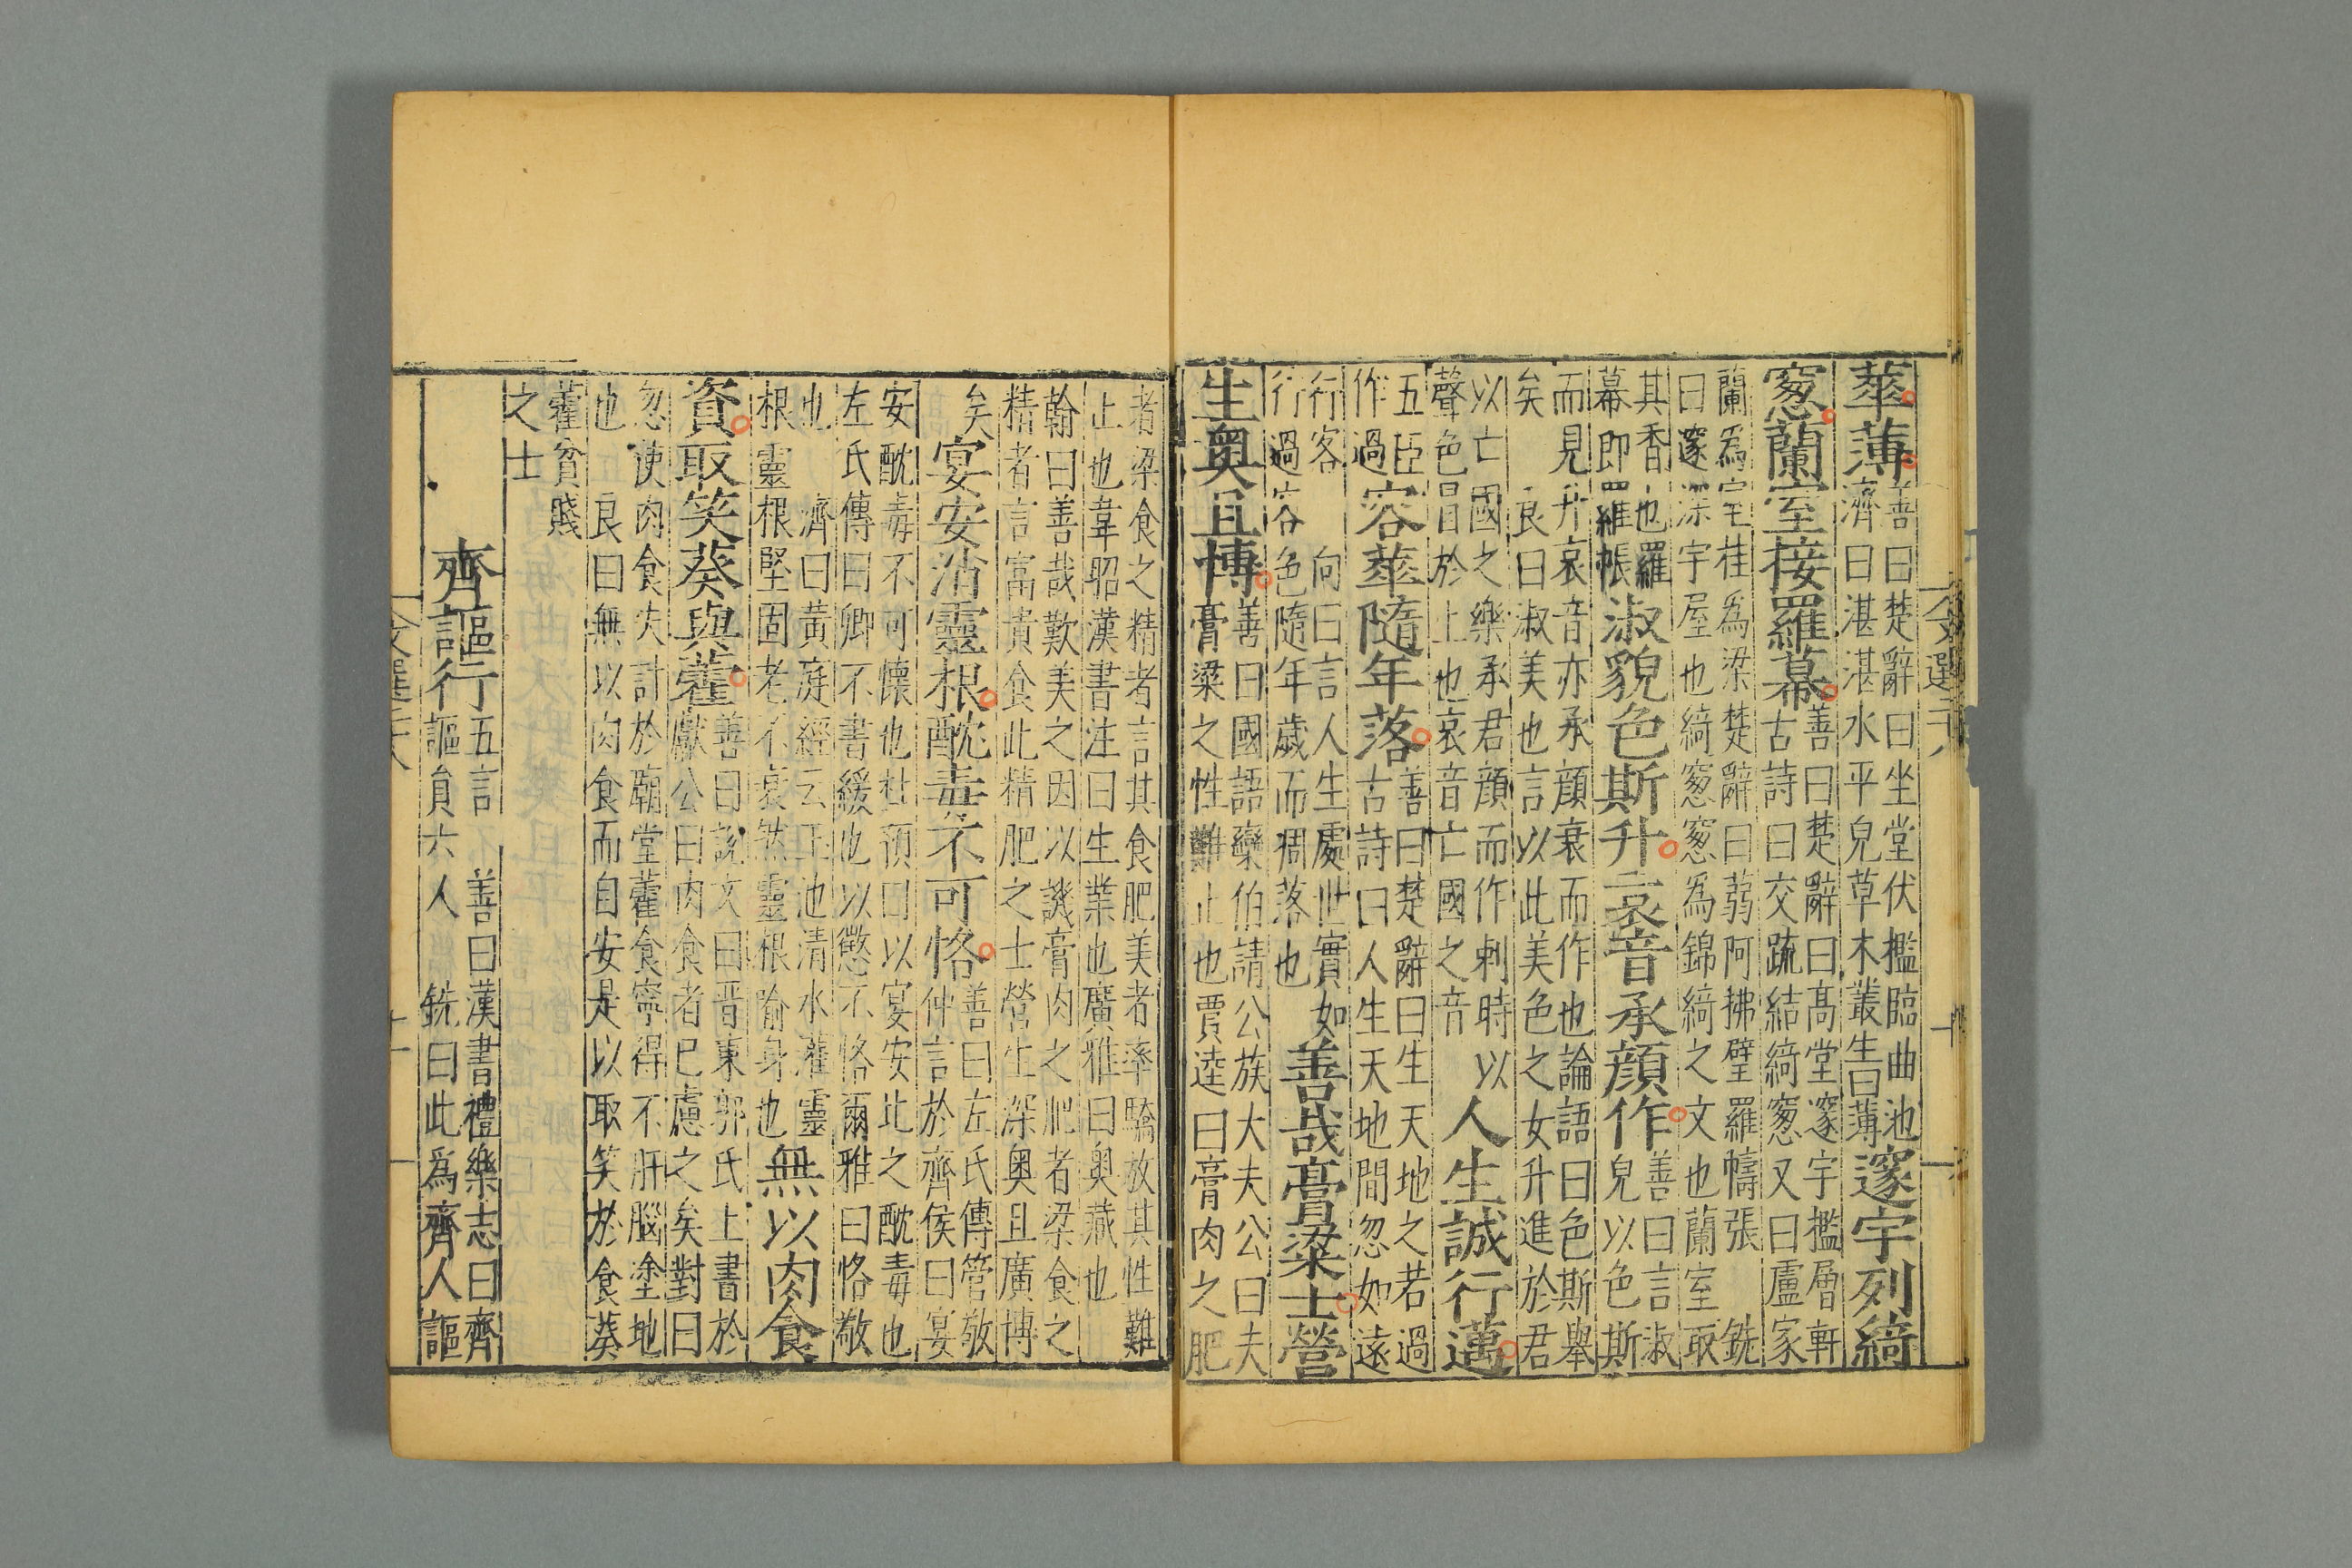 文選二十八
華薄善曰楚辭曰坐堂伏檻臨曲池
濟曰湛湛水平皃草木叢生曰薄邃宇列綺
窓蘭室接羅幕善曰楚辭曰高堂邃宇檻層軒
古詩曰交疏結綺窓又曰盧家
蘭爲室桂爲梁楚辭曰蒻阿拂壁羅幬張 銑
曰邃深宇屋也綺窓窓爲錦綺之文也蘭室取
其香也羅
幕即羅帳淑貌色斯升哀音承顔作善曰言淑
皃以色斯
而見升哀音亦承顔衰而作也論語曰色斯舉
矣 良曰淑美也言以此美色之女升進於君
以亡國之樂承君顔而作刺時以
聲色冒於上也哀音亡國之音人生誠行邁
五臣
作過容華隨年落善曰楚辭曰生天地之若過
古詩曰人生天地間忽如遠
行客 向曰言人生處世實如
行過客色隨年歲而凋落也善哉膏粱士營
生奧且博善曰國語欒伯請公族大夫公曰夫
膏粱之性難止也賈逵曰膏肉之肥
者梁食之精者言其食肥美者率驕放其性難
止也韋昭漢書注曰生業也廣雅曰奧藏也
翰曰善哉歎美之因以譏膏肉之肥者梁食之
精者言富貴食此精肥之士營生深奥且廣博
矣宴安消靈根酖毒不可恪善曰左氏傳管敬
仲言於齊侯曰宴
安酖毒不可懷也杜預曰以宴安比之酖毒也
左氏傳曰卿不書緩也以懲不恪爾雅曰恪敬
也 濟曰黃庭經云玉池清水灌靈
根靈根堅固老不衰然靈根喻身也無以肉食
資取笑葵與藿善曰說文曰晋東郭氏上書於
獻公曰肉食者已慮之矣對曰
忽使肉食失計於廟堂藿食寧得不肝腦塗地
也 良曰無以肉食而自安是以取笑於食葵
藿貧賤
之士
齊謳行五言 善曰漢書禮樂志曰齊
謳員六人 銑曰此爲齊人謳
文選二十八
十一